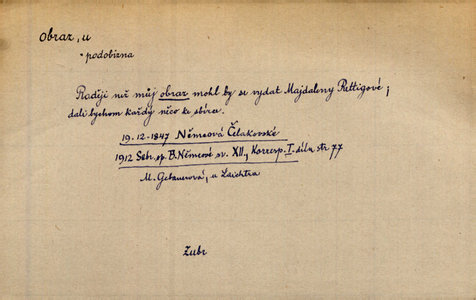 Obraz, u
= podobizna
Raději než můj obraz mohl by se vydat Majdaleny Rettigové;
dali bychom každý něco ke sbírce.
19-12-1847 Němcová Čelakovské
1912 Sebr. sp. B. Němcové sv. XII., Korresp. I. dílu, str 77
M. Gebauerová, u Laichtra
Zubr